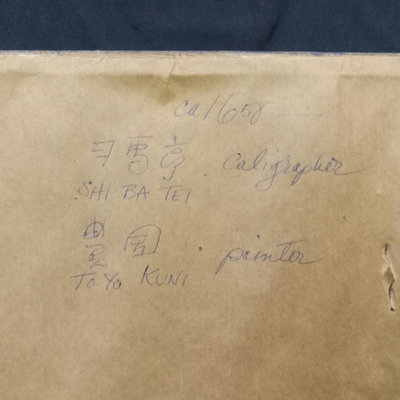 ca 1650
司馬亭 . caligrapher
SHI BA TEI
豊国 . painter
TOYO KUNI